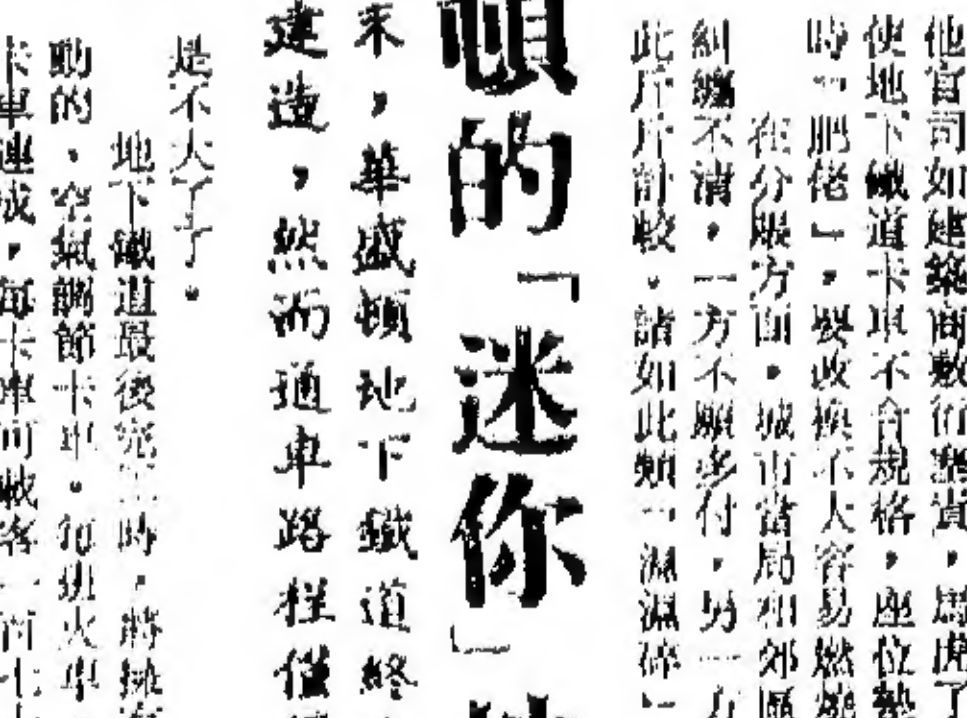 他官司如建築商敷衍塞責，馬虎了
使地下鐵道卡車不合規格，座位墊
時「肥佬」，要改換不大容易燃燒
在分賬方面，城市當局和郊區
糾纏不清，一方不願多付，另一方
此斤斤計較。諸如此類「濕濕碎」
頓的「迷你」
末，華盛頓地下鐵道終
建造，然而通車路程僅
是不大了了。
地下鐵道最後完工時，將擁有
動的，空氣調節卡車。每班火車
卡車連成，每卡車可載客一百七十